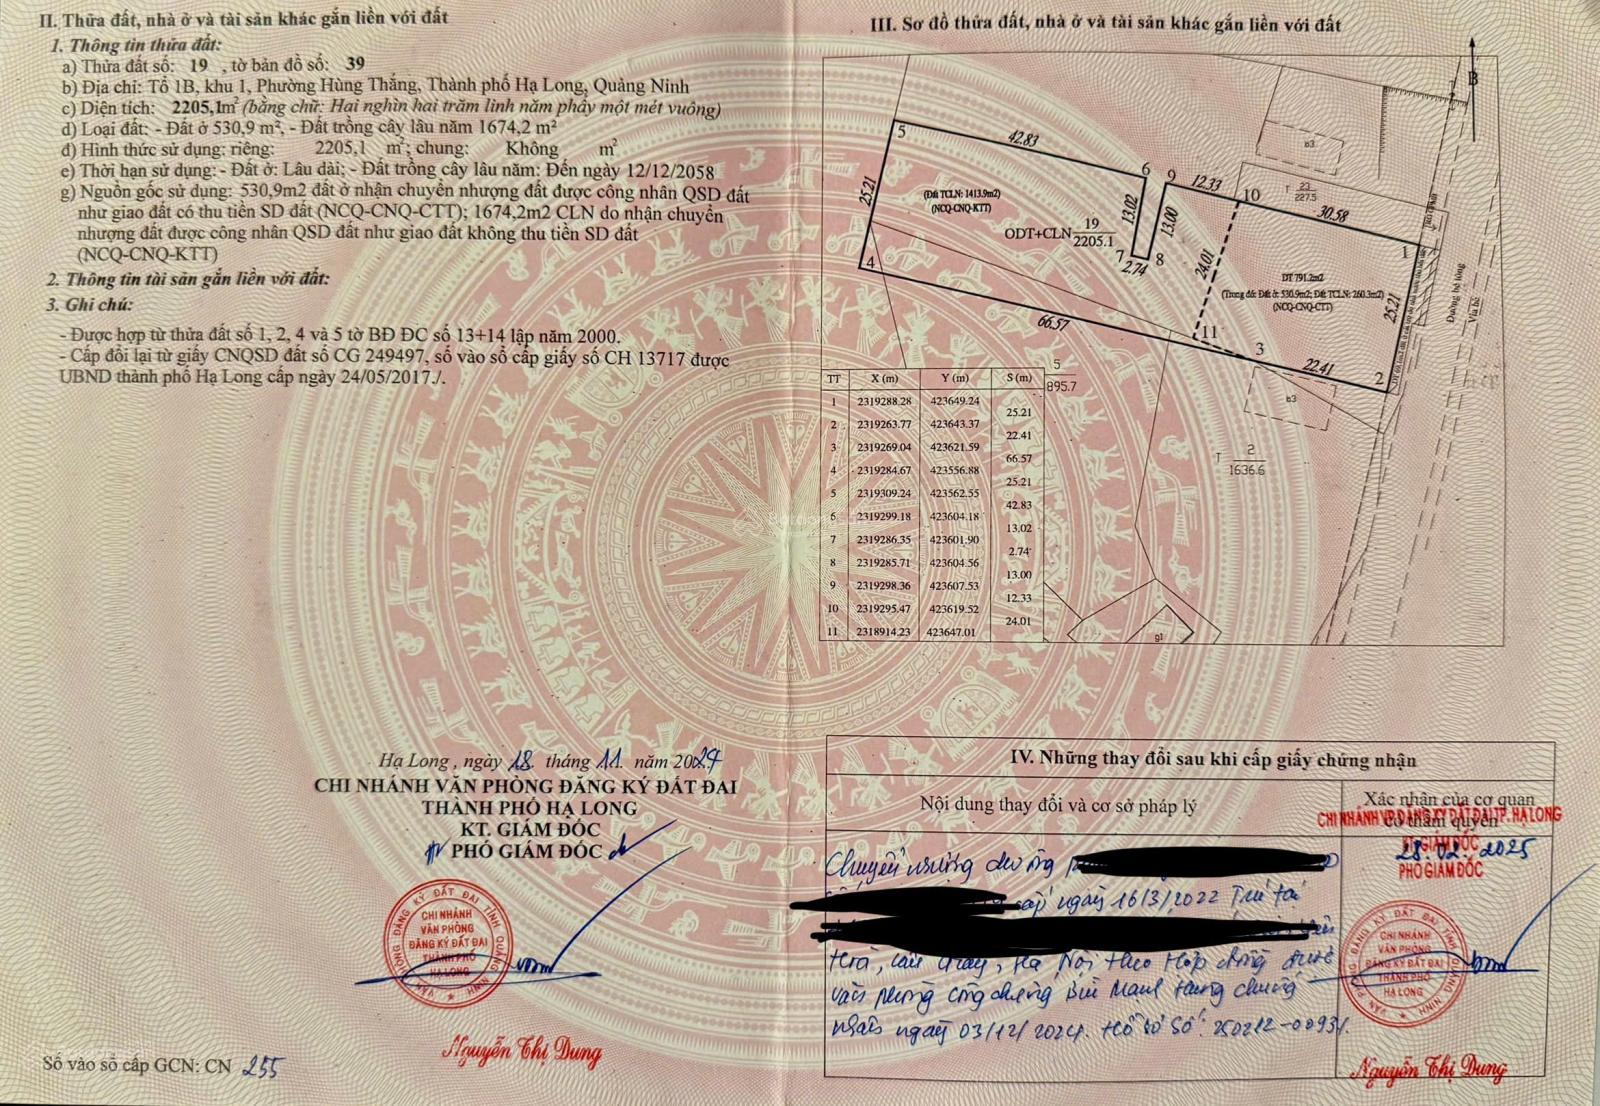 II. Thửa đất, nhà ở và tài sản khác gắn liền với đất
1. Thông tin thửa đất:
a) Thửa đất số: 19 , tờ bản đồ số: 39
b) Địa chỉ: Tổ 1B, khu 1, Phường Hùng Thắng, Thành phố Hạ Long, Quảng Ninh
c) Diện tích: 2205,1m² (bằng chữ: Hai nghìn hai trăm linh năm phẩy một mét vuông)
d) Loại đất: - Đất ở 530,9 m², - Đất trồng cây lâu năm 1674,2 m²
đ) Hình thức sử dụng: riêng: 2205,1 m²; chung: Không m²
e) Thời hạn sử dụng: - Đất ở: Lâu dài; - Đất trồng cây lâu năm: Đến ngày 12/12/2058
g) Nguồn gốc sử dụng: 530,9m2 đất ở nhận chuyển nhượng đất được công nhân QSD đất
như giao đất có thu tiền SD đất (NCQ-CNQ-CTT); 1674,2m2 CLN do nhận chuyển
nhượng đất được công nhân QSD đất như giao đất không thu tiền SD đất
(NCQ-CNQ-KTT)
2. Thông tin tài sản gắn liền với đất:
3. Ghi chú:
- Được hợp từ thửa đất số 1, 2, 4 và 5 tờ BĐ ĐC số 13+14 lập năm 2000.
- Cấp đổi lại từ giấy CNQSD đất số CG 249497, số vào sổ cấp giấy số CH 13717 được
UBND thành phố Hạ Long cấp ngày 24/05/2017./.
Hạ Long , ngày 18 tháng 11 năm 2024
CHI NHÁNH VĂN PHÒNG ĐĂNG KÝ ĐẤT ĐAI
THÀNH PHỐ HẠ LONG
KT. GIÁM ĐỐC
PHÓ GIÁM ĐỐC
VĂN PHÒNG ĐĂNG KÝ ĐẤT ĐAI TỈNH QUẢNG NINH
CHI NHÁNH
VĂN PHÒNG
ĐĂNG KÝ ĐẤT ĐAI
THÀNH PHỐ
HẠ LONG
Nguyễn Thị Dung
Số vào sổ cấp GCN: CN 255
III. Sơ đồ thửa đất, nhà ở và tài sản khác gắn liền với đất
B
5
42.83
6
9
12.33
10
30.58
1
25.21
(Đất TCLN: 1413.9m2)
(NCQ-CNQ-KTT)
ODT+CLN 19
2205.1
13.02
13.00
7
2.74
8
24.01
b3
T 23
227.5
ĐT 791.2m2
(Trong đó: Đất ở: 530.9m2; Đất TCLN: 260.3m2)
(NCQ-CNQ-CTT)
25.21
Đường bê tông
Vỉa hè
4
66.57
11
3
22.41
2
b3
5
895.7
T 2
1636.6
g1
TT X (m) Y (m) S (m)
1 2319288.28 423649.24
25.21
2 2319263.77 423643.37
22.41
3 2319269.04 423621.59
66.57
4 2319284.67 423556.88
25.21
5 2319309.24 423562.55
42.83
6 2319299.18 423604.18
13.02
7 2319286.35 423601.90
2.74
8 2319285.71 423604.56
13.00
9 2319298.36 423607.53
12.33
10 2319295.47 423619.52
24.01
11 2318914.23 423647.01
IV. Những thay đổi sau khi cấp giấy chứng nhận
Nội dung thay đổi và cơ sở pháp lý
Xác nhận của cơ quan
có thẩm quyền
CHI NHÁNH VP. ĐĂNG KÝ ĐẤT ĐAI TP. HẠ LONG
KT. GIÁM ĐỐC
28.02.2025
PHÓ GIÁM ĐỐC
Chuyển nhượng
cấp ngày 16/3/2022
Hà Nội theo Hợp đồng được
văn phòng công chứng Bùi Mạnh Hùng chứng
nhận ngày 03/12/2024. Hồ sơ số: 250212-0093/.
VĂN PHÒNG ĐĂNG KÝ ĐẤT ĐAI TỈNH QUẢNG NINH
CHI NHÁNH
VĂN PHÒNG
ĐĂNG KÝ ĐẤT ĐAI
THÀNH PHỐ
HẠ LONG
Nguyễn Thị Dung